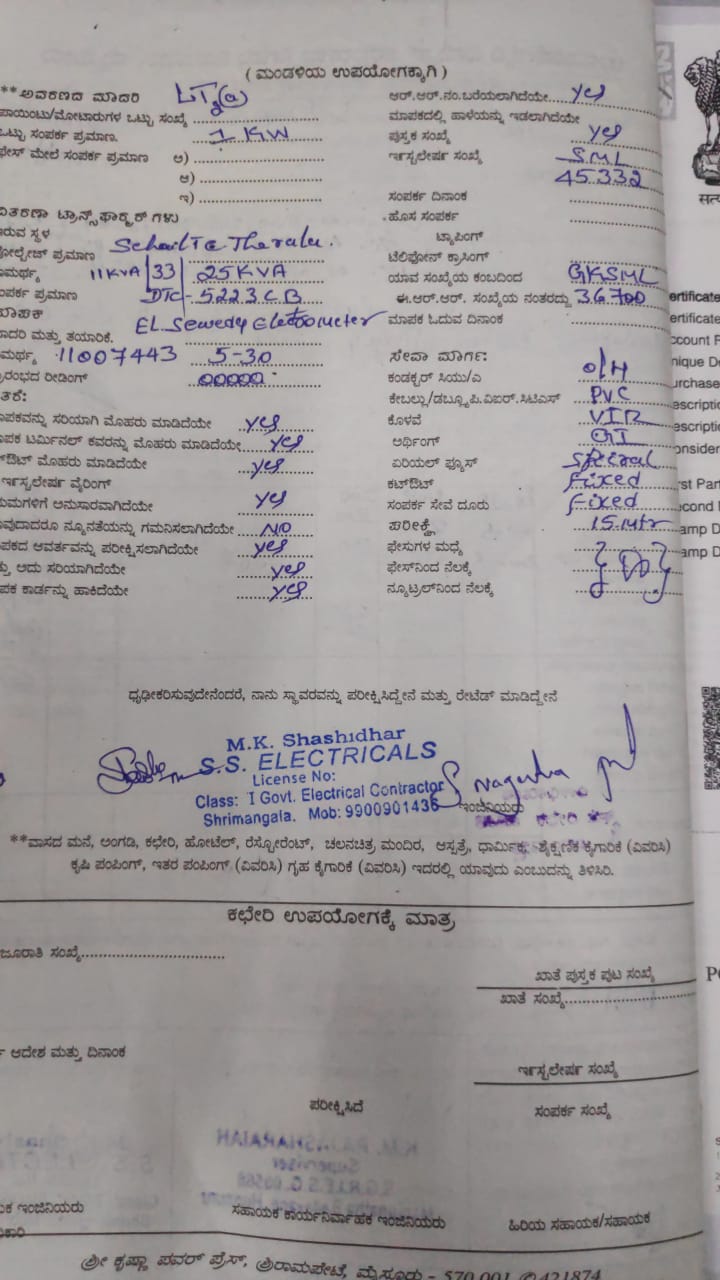 ( ಮಂಡಳಿಯ ಉಪಯೋಗಕ್ಕಾಗಿ )
**ಅವರಣದ ಮಾದರಿ LT2(a)
ಪಾಯಿಂಟು/ಮೋಟಾರುಗಳ ಒಟ್ಟು ಸಂಖ್ಯೆ
ಒಟ್ಟು ಸಂಪರ್ಕ ಪ್ರಮಾಣ. 1 KW
ಫೇಸ್ ಮೇಲೆ ಸಂಪರ್ಕ ಪ್ರಮಾಣ ಅ)
ಆ)
ಇ)
ವಿತರಣಾ ಟ್ರಾನ್ಸ್‌ಫಾರ್ಮರ್ ಗಳು
ಇರುವ ಸ್ಥಳ
ವೋಲ್ಟೇಜ್ ಪ್ರಮಾಣ
11KVA/33/25KVA
ಸಂಪರ್ಕ ಪ್ರಮಾಣ DTC-5223CB
ಮಾಪಕ
ಮಾದರಿ ಮತ್ತು ತಯಾರಿಕೆ. EL Sewedy Electrometer
11007443 5-30
ಪ್ರಾರಂಭದ ರೀಡಿಂಗ್ 00000
ಮಾಪಕವನ್ನು ಸರಿಯಾಗಿ ಮೊಹರು ಮಾಡಿದೆಯೇ yes
ಮಾಪಕ ಟರ್ಮಿನಲ್ ಕವರನ್ನು ಮೊಹರು ಮಾಡಿದೆಯೇ yes
ಕಟ್‌ಔಟ್ ಮೊಹರು ಮಾಡಿದೆಯೇ yes
ಇನ್ಸ್ಟಲೇಷನ್ ವೈರಿಂಗ್
ನಿಯಮಗಳಿಗೆ ಅನುಸಾರವಾಗಿದೆಯೇ yes
ಯಾವುದಾದರೂ ನ್ಯೂನತೆಯನ್ನು ಗಮನಿಸಲಾಗಿದೆಯೇ NO
ಮಾಪಕದ ಆವರ್ತವನ್ನು ಪರೀಕ್ಷಿಸಲಾಗಿದೆಯೇ yes
ಮತ್ತು ಅದು ಸರಿಯಾಗಿದೆಯೇ yes
ಮಾಪಕ ಕಾರ್ಡನ್ನು ಹಾಕಿದೆಯೇ yes
ಆರ್.ಆರ್.ನಂ.ಬರೆಯಲಾಗಿದೆಯೇ yes
ಮಾಪಕದಲ್ಲಿ ಹಾಳೆಯನ್ನು ಇಡಲಾಗಿದೆಯೇ
ಪುಸ್ತಕ ಸಂಖ್ಯೆ yes
ಇನ್ಸ್ಟಲೇಷನ್ ಸಂಖ್ಯೆ SML
45332
ಸಂಪರ್ಕ ದಿನಾಂಕ
ಹೊಸ ಸಂಪರ್ಕ
ಟ್ಯಾಪಿಂಗ್
ಟೆಲಿಫೋನ್ ಕ್ರಾಸಿಂಗ್
ಯಾವ ಸಂಖ್ಯೆಯ ಕಂಬದಿಂದ GKSML
ಈ.ಆರ್.ಆರ್. ಸಂಖ್ಯೆಯ ನಂತರದ್ದು 36700
ಮಾಪಕ ಓದುವ ದಿನಾಂಕ
ಸೇವಾ ಮಾರ್ಗ:
ಕಂಡಕ್ಟರ್ ಸಿಯು/ಎ O/H
ಕೇಬಲ್ಲು/ಡಬ್ಲ್ಯೂ.ಪಿ.ವಿಐಆರ್.ಸಿಟಿಎಸ್ PVC
ಕೊಳವೆ VIR
ಅರ್ಥಿಂಗ್ GI
ಏರಿಯಲ್ ಫ್ಯೂಸ್
ಕಟ್‌ಔಟ್ Fixed
ಸಂಪರ್ಕ ಸೇವೆ ದೂರು Fixed
ಪರೀಕ್ಷೆ 15 mtr
ಫೇಸುಗಳ ಮಧ್ಯೆ
ಫೇಸ್‌ನಿಂದ ನೆಲಕ್ಕೆ
ನ್ಯೂಟ್ರಲ್‌ನಿಂದ ನೆಲಕ್ಕೆ
ಧೃಢೀಕರಿಸುವುದೇನೆಂದರೆ, ನಾನು ಸ್ಥಾವರವನ್ನು ಪರೀಕ್ಷಿಸಿದ್ದೇನೆ ಮತ್ತು ರೇಟೆಡ್ ಮಾಡಿದ್ದೇನೆ
M.K. Shashidhar
S.S. ELECTRICALS
License No:
Class: I Govt. Electrical Contractor
Shrimangala. Mob: 9900901436
ಇಂಜಿನಿಯರು
**ವಾಸದ ಮನೆ, ಅಂಗಡಿ, ಕಛೇರಿ, ಹೋಟೆಲ್, ರೆಸ್ಟೋರೆಂಟ್, ಚಲನಚಿತ್ರ ಮಂದಿರ, ಆಸ್ಪತ್ರೆ, ಧಾರ್ಮಿಕ, ಶೈಕ್ಷಣಿಕ ಕೈಗಾರಿಕೆ (ವಿವರಿಸಿ)
ಕೃಷಿ ಪಂಪಿಂಗ್, ಇತರ ಪಂಪಿಂಗ್ (ವಿವರಿಸಿ) ಗೃಹ ಕೈಗಾರಿಕೆ (ವಿವರಿಸಿ) ಇದರಲ್ಲಿ ಯಾವುದು ಎಂಬುದನ್ನು ತಿಳಿಸಿರಿ.
ಕಛೇರಿ ಉಪಯೋಗಕ್ಕೆ ಮಾತ್ರ
ಜೂರಾತಿ ಸಂಖ್ಯೆ
ಖಾತೆ ಪುಸ್ತಕ ಪುಟ ಸಂಖ್ಯೆ
ಖಾತೆ ಸಂಖ್ಯೆ
ಆದೇಶ ಮತ್ತು ದಿನಾಂಕ
ಇನ್ಸ್ಟಲೇಷನ್ ಸಂಖ್ಯೆ
ಪರೀಕ್ಷಿಸಿದೆ
ಸಂಪರ್ಕ ಸಂಖ್ಯೆ
ಇಂಜಿನಿಯರು
ಸಹಾಯಕ ಕಾರ್ಯನಿರ್ವಾಹಕ ಇಂಜಿನಿಯರು
ಹಿರಿಯ ಸಹಾಯಕ/ಸಹಾಯಕ
ಶ್ರೀ ಕೃಷ್ಣಾ ಪವರ್ ಪ್ರೆಸ್, ಶ್ರೀರಾಮಪೇಟೆ, ಮೈಸೂರು - 570 001 ✆ 421874